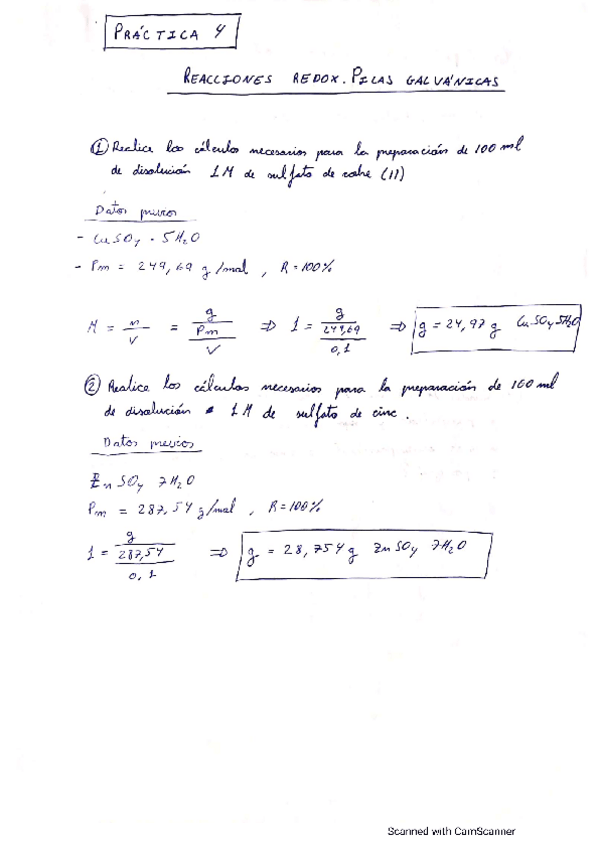 PRÁCTICA 4
REACCIONES REDOX. PILAS GALVÁNICAS
① Realice los cálculos necesarios para la preparación de 100 ml
de disolución 1M de sulfato de cobre (II)
Datos previos
- CuSO4 · 5H2O
- Pm = 249,69 g/mol , R = 100%
M = n/V = (g/Pm)/V => 1 = (g/249,69)/0,1 => g = 24,97 g CuSO4 5H2O
② Realice los cálculos necesarios para la preparación de 100 ml
de disolución 1M de sulfato de cinc.
Datos previos
ZnSO4 7H2O
Pm = 287,54 g/mol , R = 100%
1 = (g/287,54)/0,1 => g = 28,754 g ZnSO4 7H2O
Scanned with CamScanner